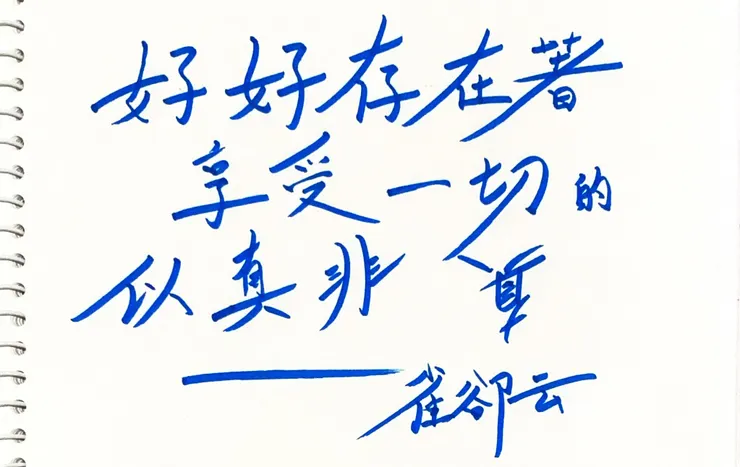 好好存在著
享受一切的
似真非真
——雀卻云